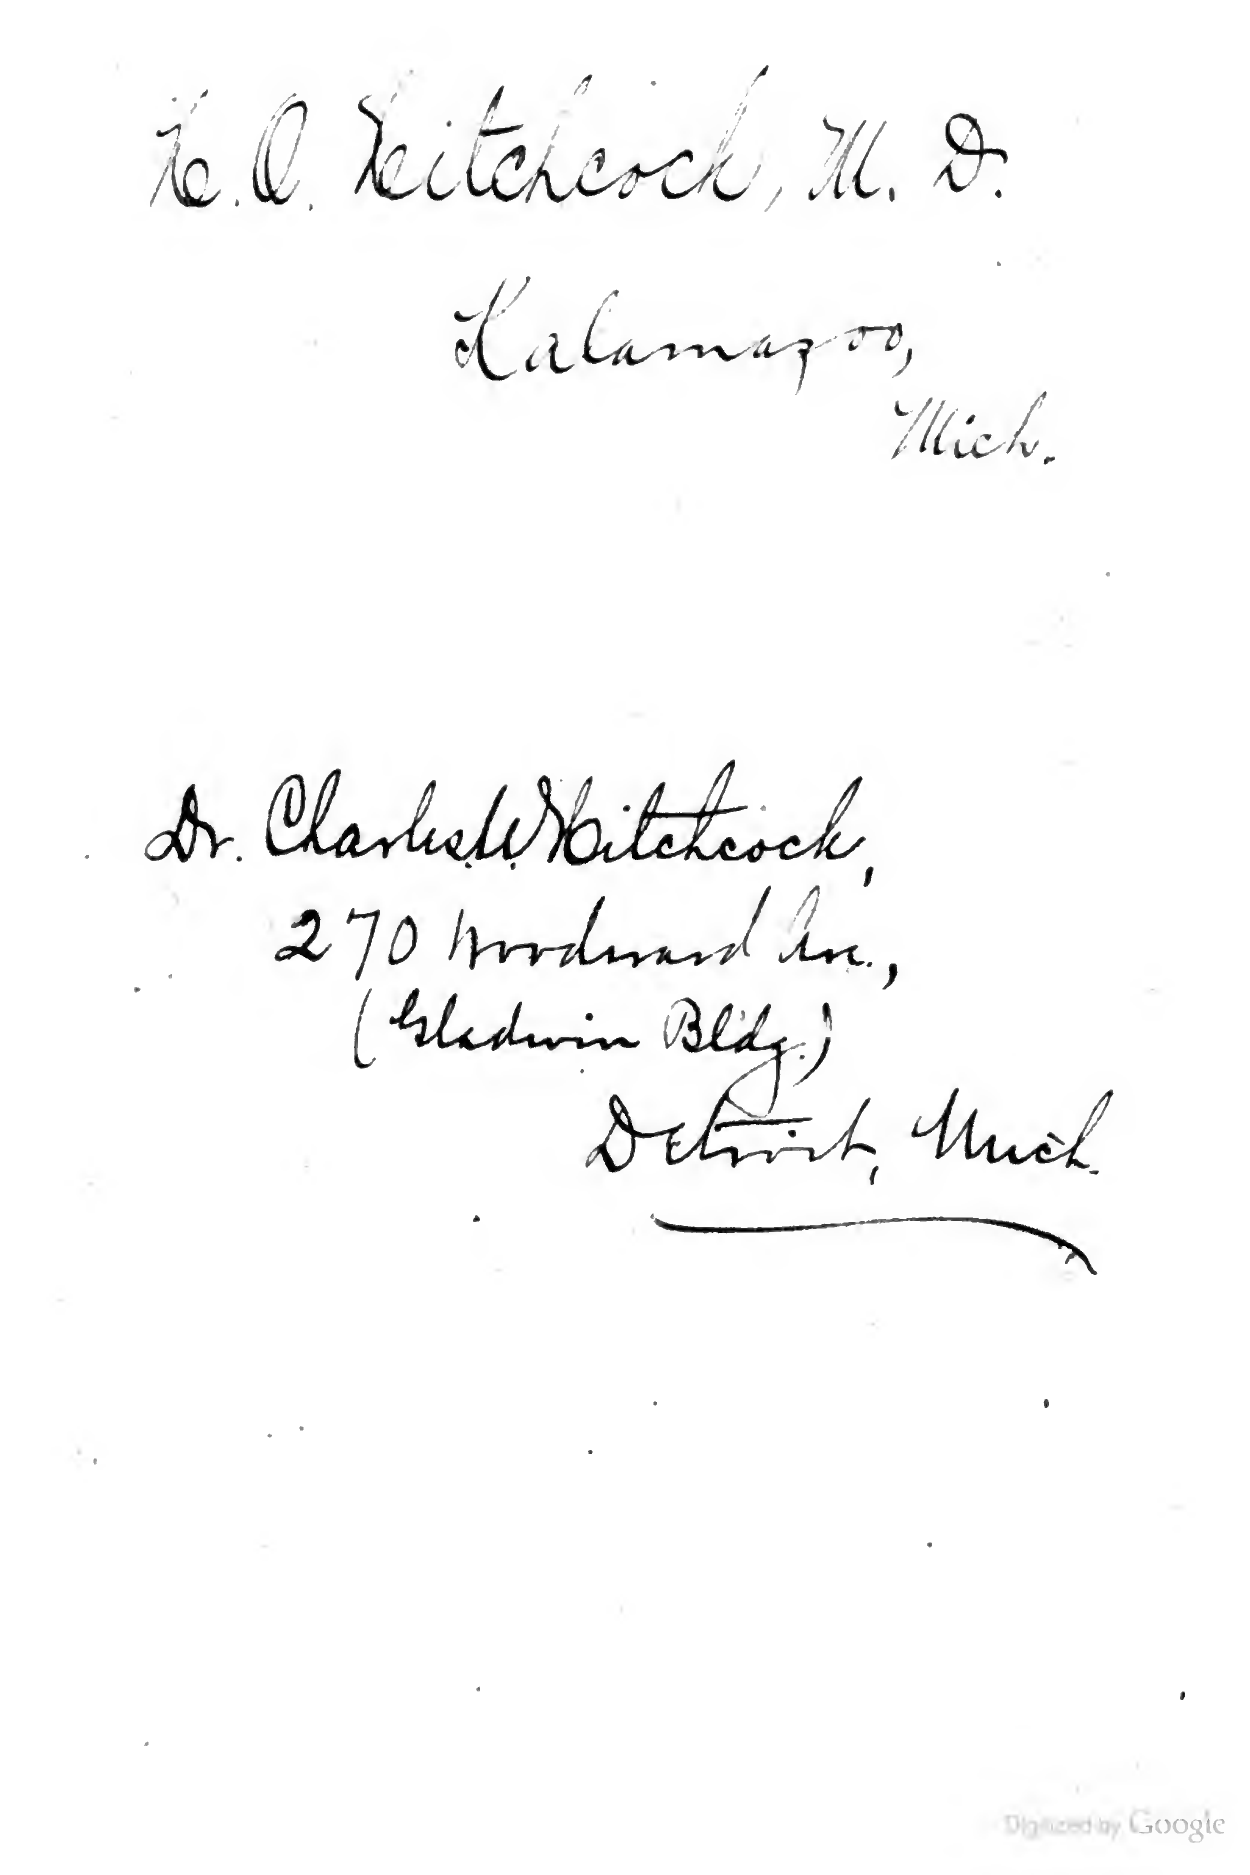 H. O. Hitchcock, M. D.
Kalamazoo,
Mich.
Dr. Charles W. Hitchcock,
270 Woodward Ave.,
(Gladwin Bldg.)
Detroit, Mich.
Digitized by Google